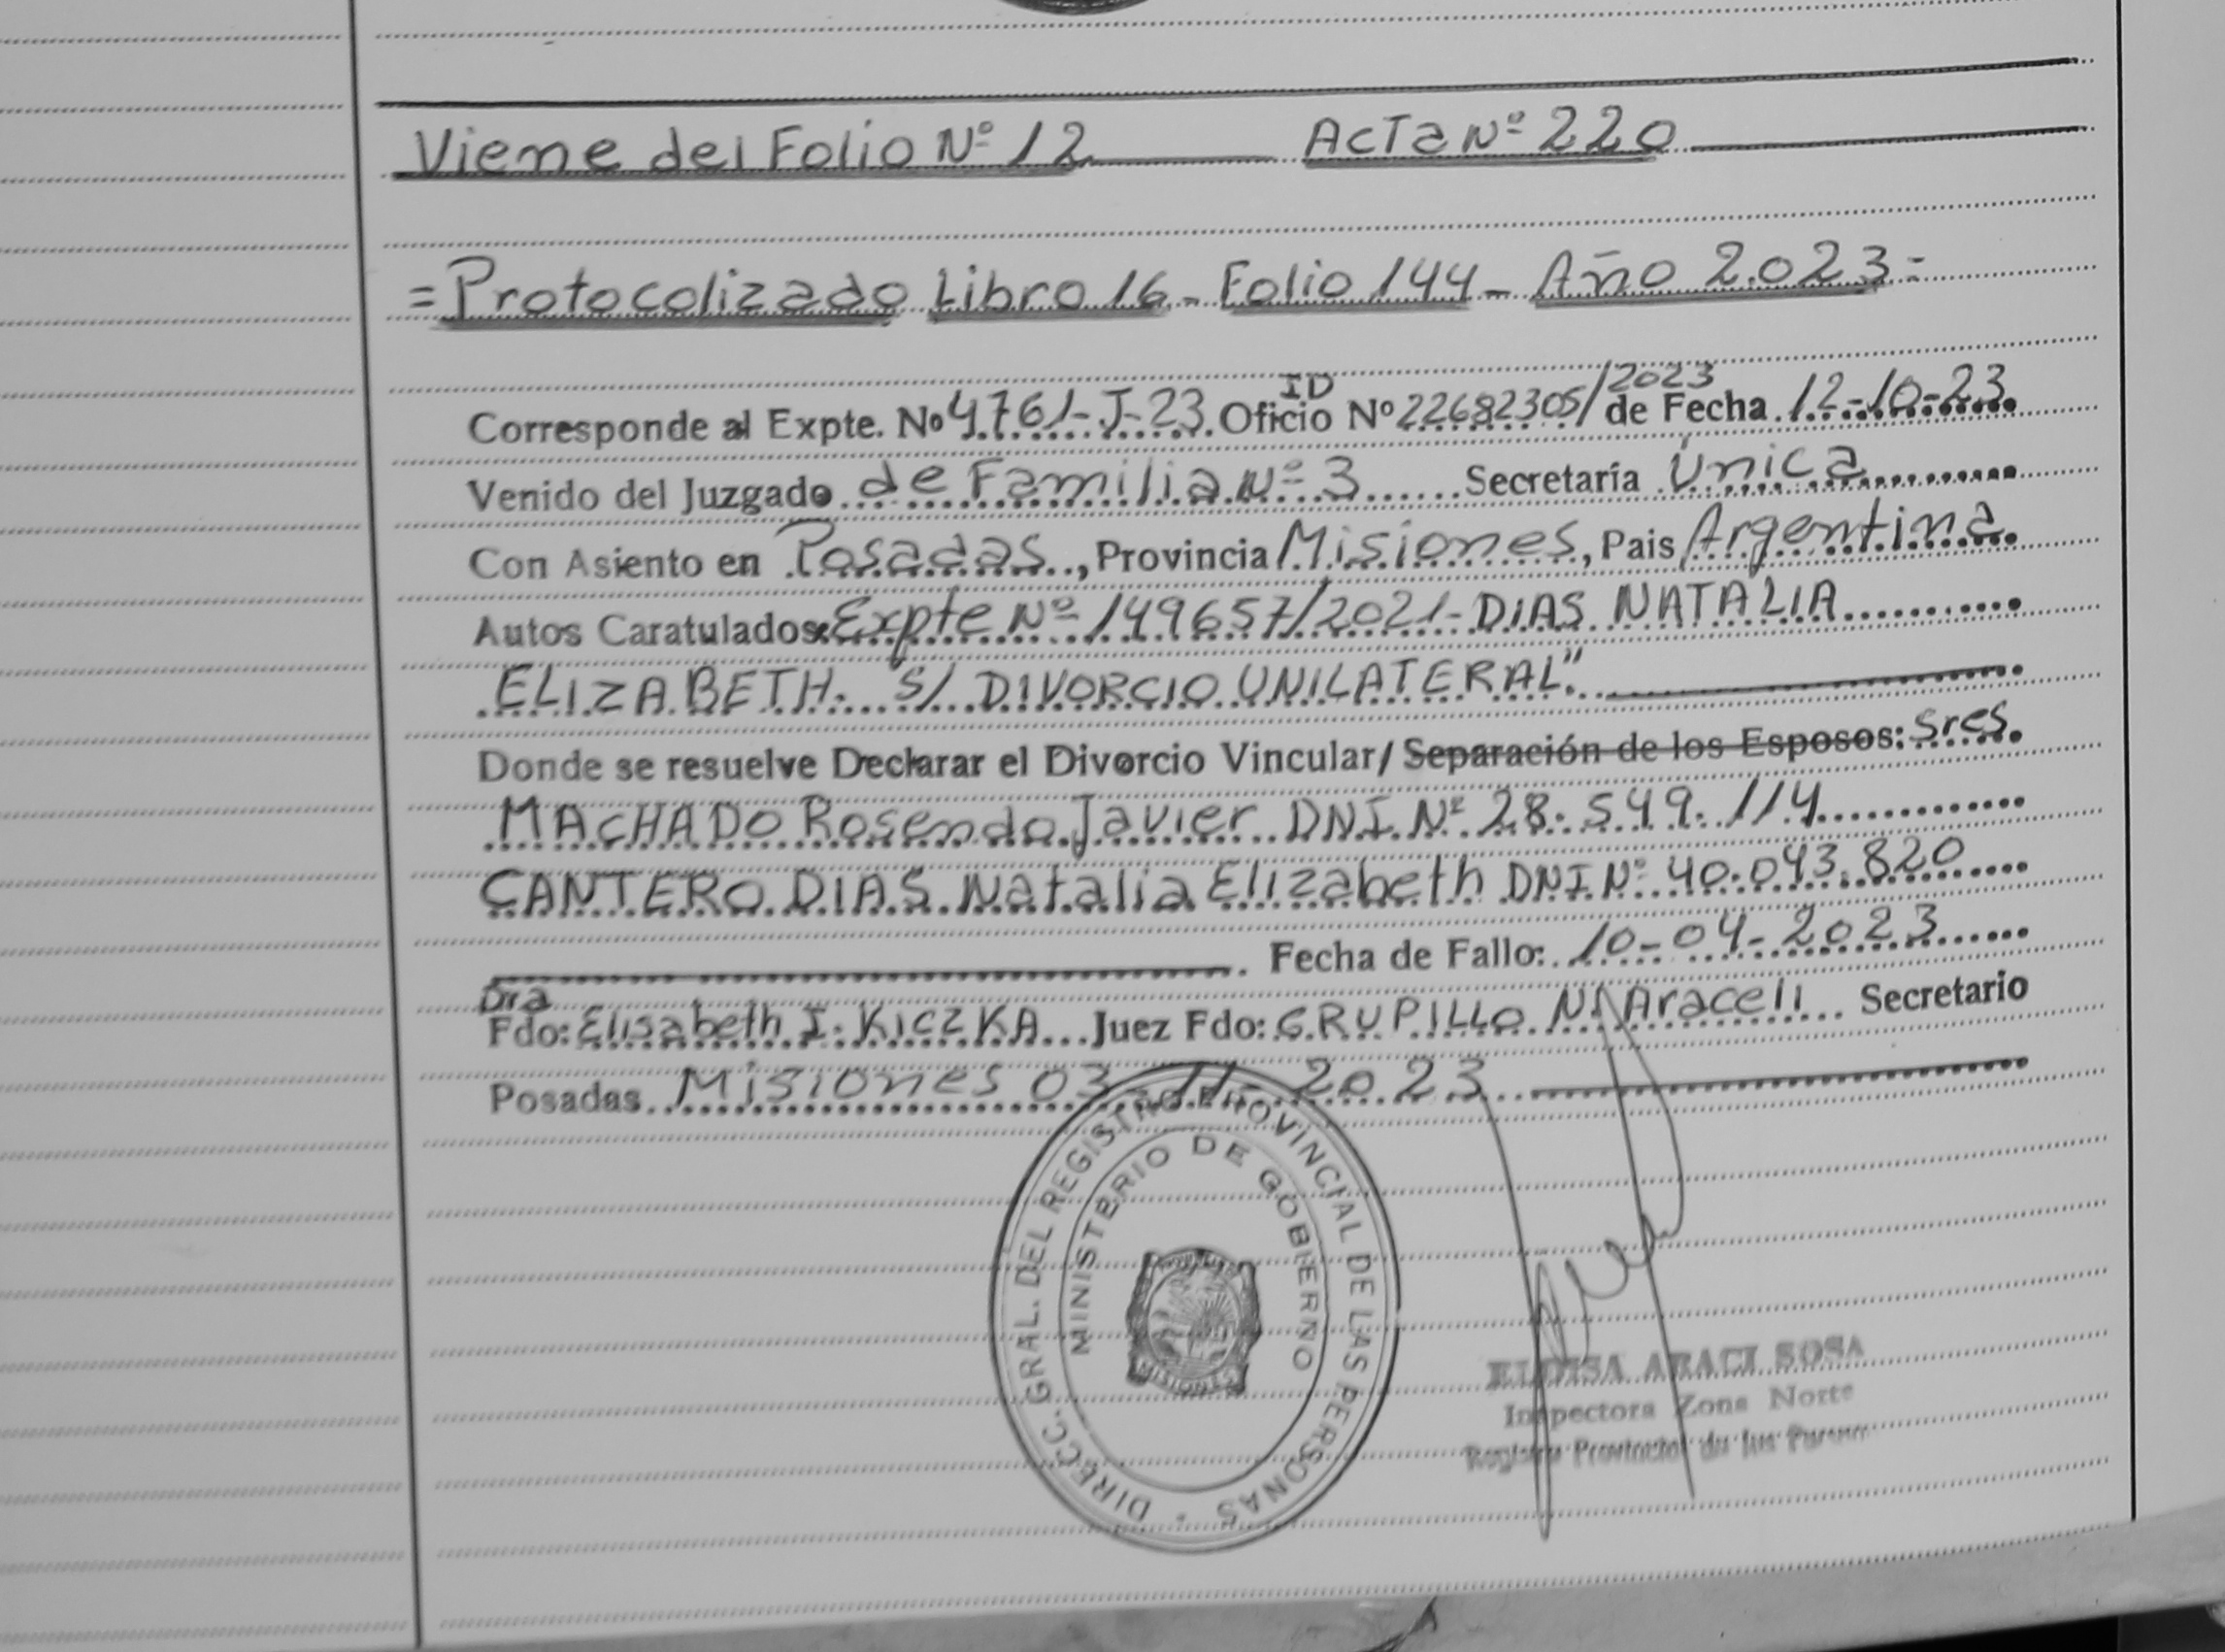 Viene del Folio Nº 12 Acta Nº 220
= Protocolizado Libro 16 - Folio 144 - Año 2.023 =
Corresponde al Expte. Nº 4761-J-23. ID Oficio Nº 22682305/2023 de Fecha 12-10-23.
Venido del Juzgado de Familia Nº 3 Secretaría Única
Con Asiento en Posadas, Provincia Misiones, Pais Argentina.
Autos Caratulados: Expte Nº 149657/2021- DIAS NATALIA
ELIZABETH. S/ DIVORCIO UNILATERAL"
Donde se resuelve Declarar el Divorcio Vincular/ Separación de los Esposos: Sres.
MACHADO Rosendo Javier DNI Nº 28.549.114
CANTERO DIAS Natalia Elizabeth DNI Nº 40.043.820
Fecha de Fallo: 10-04-2023
Dra
Fdo: Elisabeth I. KICZKA Juez Fdo: GRUPILLO N. Araceli Secretario
Posadas Misiones 03-11-2023
DIRECC. GRAL. DEL REGISTRO PROVINCIAL DE LAS PERSONAS
MINISTERIO DE GOBIERNO
MISIONES
ELOISA ARACI SOSA
Inspectora Zona Norte
Registro Provincial de las